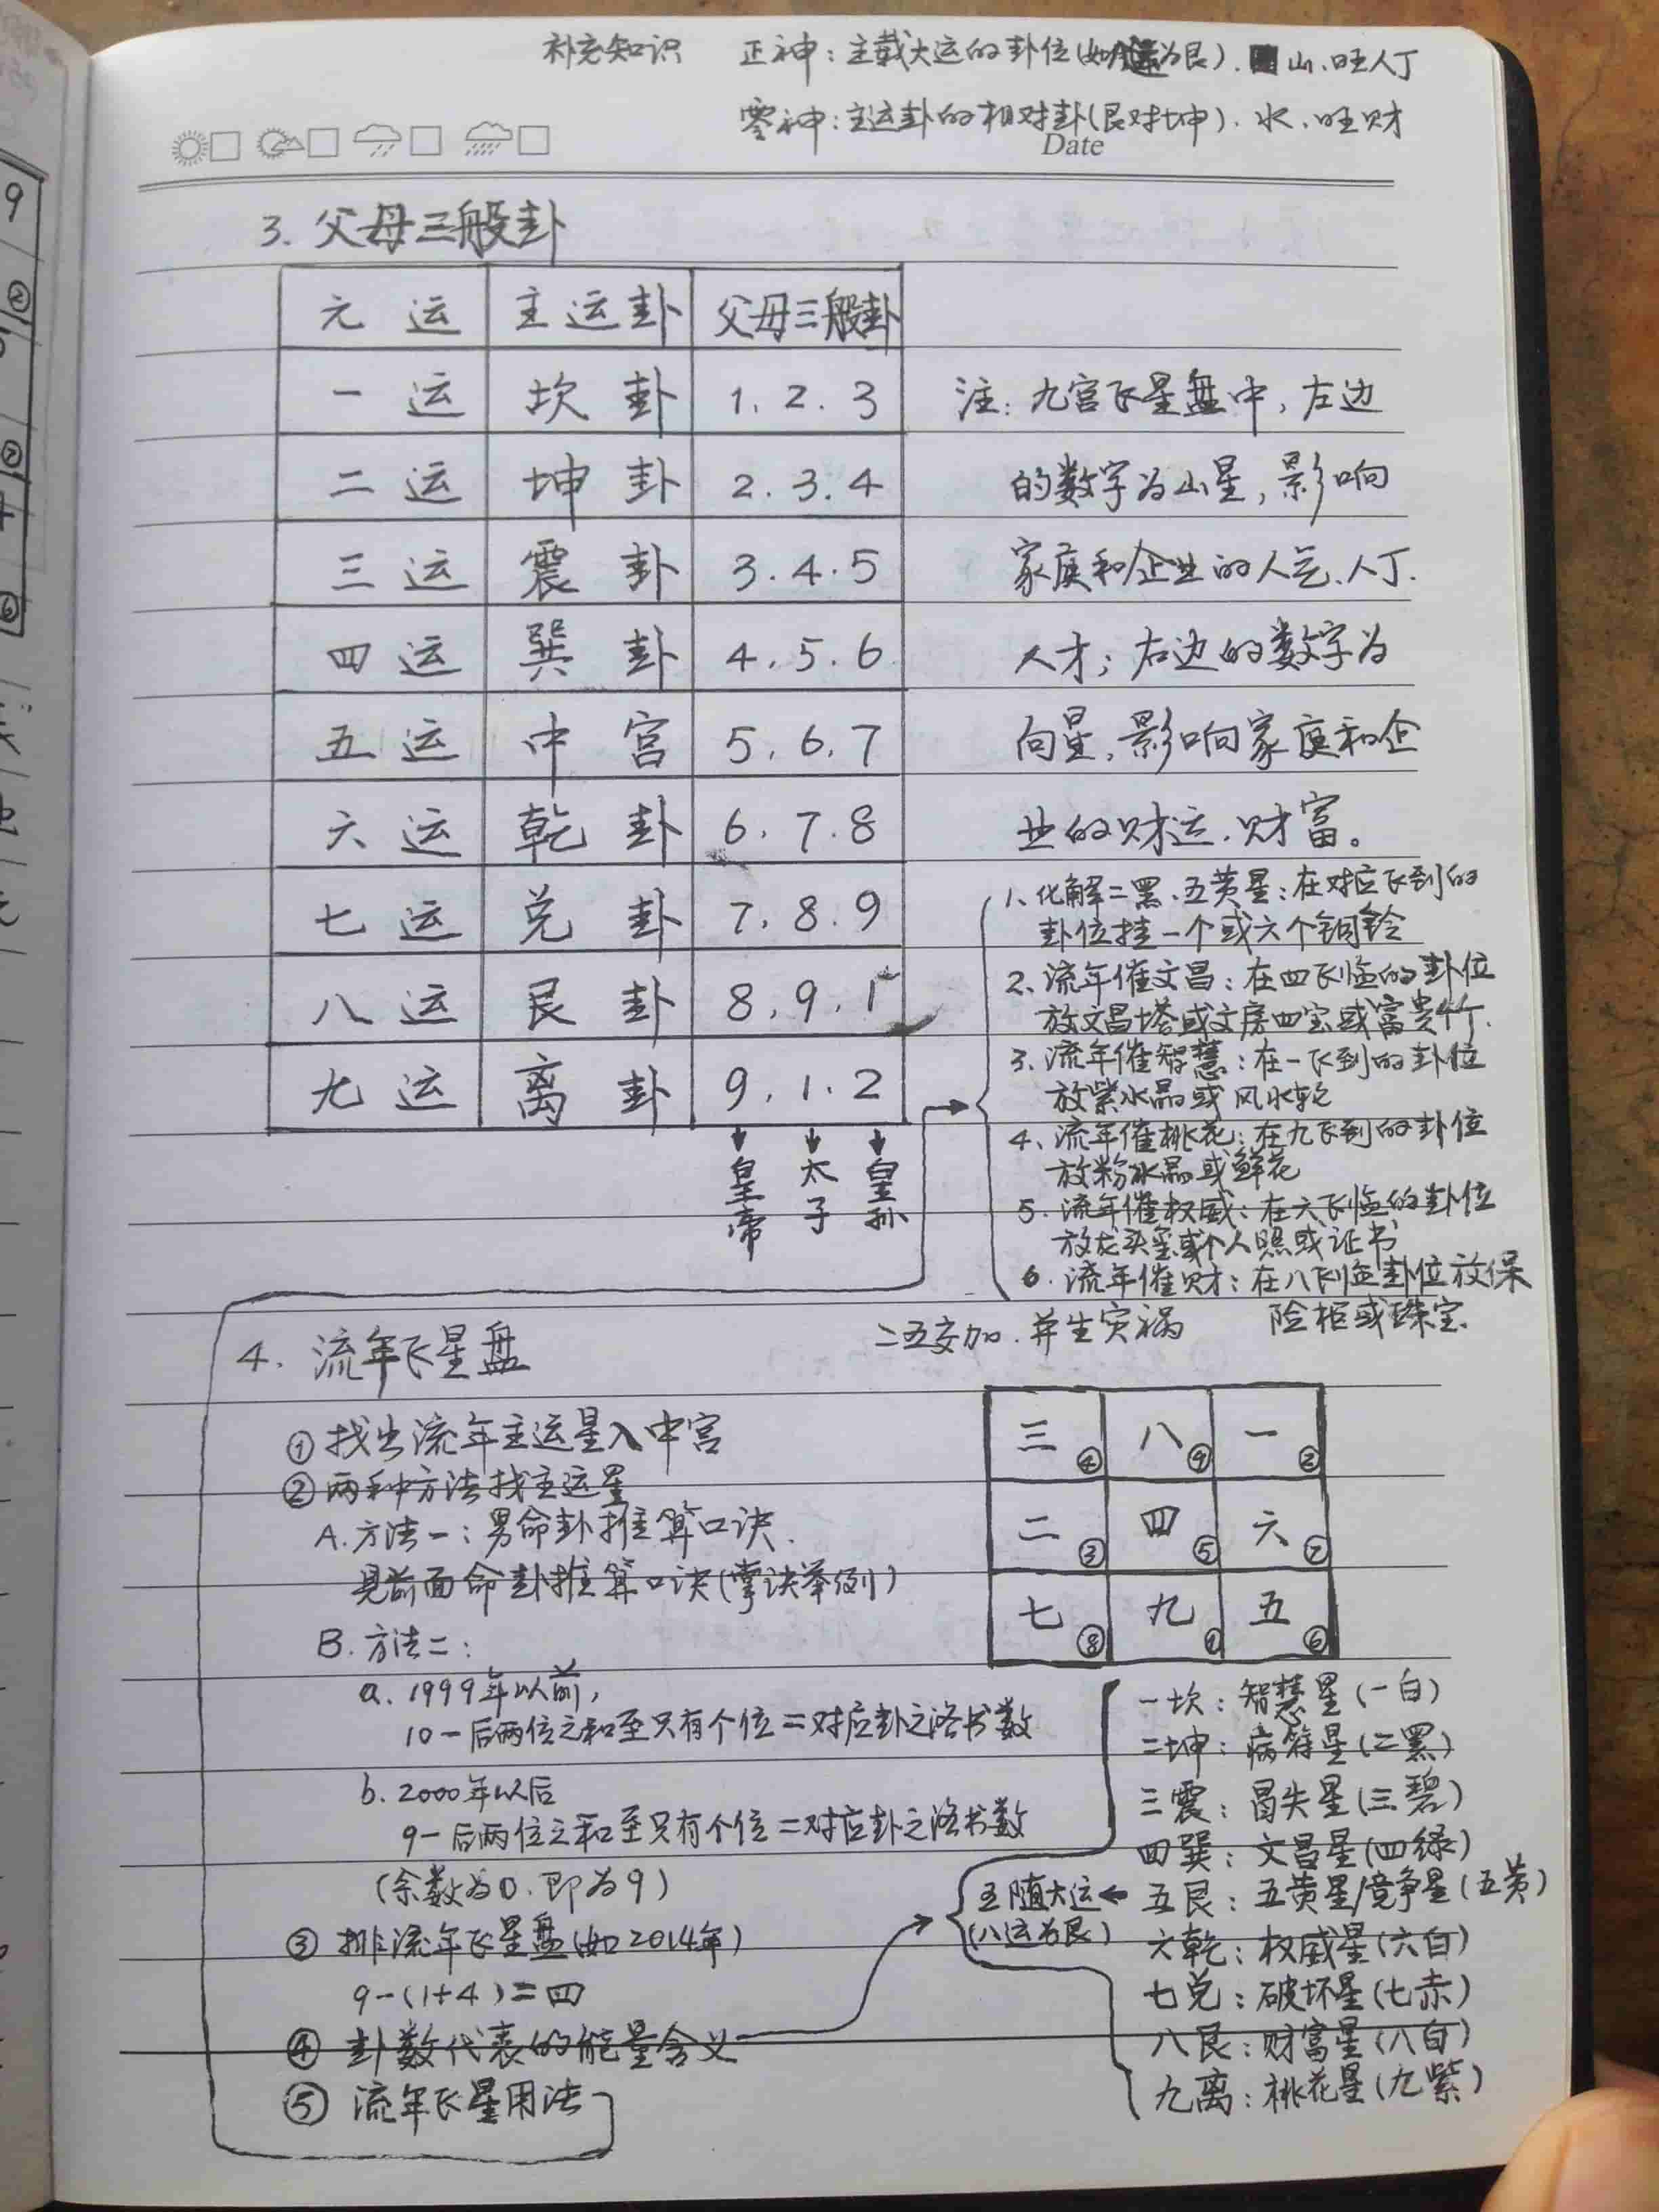 补充知识 正神：主载大运的卦位(如八运为艮). 山.旺人丁
零神：主运卦的相对卦(艮对坤). 水.旺财
Date
3. 父母三般卦
元运 主运卦 父母三般卦
一运 坎卦 1. 2. 3
二运 坤卦 2. 3. 4
三运 震卦 3. 4. 5
四运 巽卦 4. 5. 6
五运 中宫 5. 6. 7
六运 乾卦 6. 7. 8
七运 兑卦 7. 8. 9
八运 艮卦 8. 9. 1
九运 离卦 9. 1. 2
皇帝 太子 皇孙
注：九宫飞星盘中，左边
的数字为山星，影响
家庭和企业的人气、人丁.
人才；右边的数字为
向星，影响家庭和企
业的财运.财富。
1、化解二黑、五黄星：在对应飞到的
卦位挂一个或六个铜铃
2、流年催文昌：在四飞临的卦位
放文昌塔或文房四宝或富贵竹.
3. 流年催智慧：在一飞到的卦位
放紫水晶或风水轮
4、流年催桃花：在九飞到的卦位
放粉水晶或鲜花
5. 流年催权威：在六飞临的卦位
放龙头玺或个人照或证书
6. 流年催财：在八飞临卦位放保
险柜或珠宝.
二五交加.并生灾祸
4. 流年飞星盘
①找出流年主运星入中宫
②两种方法找主运星
A.方法一：男命卦推算口诀.
见前面命卦推算口诀(掌诀举例)
B.方法二：
a. 1999年以前，
10－后两位之和至只有个位＝对应卦之洛书数
b. 2000年以后
9－后两位之和至只有个位＝对应卦之洛书数
(余数为0.即为9)
③ 排流年飞星盘(如2014年)
9－(1+4)＝四
④ 卦数代表的能量含义
⑤ 流年飞星用法
三④ 八⑨ 一②
二③ 四⑤ 六⑦
七⑧ 九① 五⑥
一坎：智慧星(一白)
二坤：病符星(二黑)
三震：冒失星(三碧)
四巽：文昌星(四绿)
五艮：五黄星/竞争星(五黄)
六乾：权威星(六白)
七兑：破坏星(七赤)
八艮：财富星(八白)
九离：桃花星(九紫)
五随大运
(八运为艮)
9
②
⑦
⑥